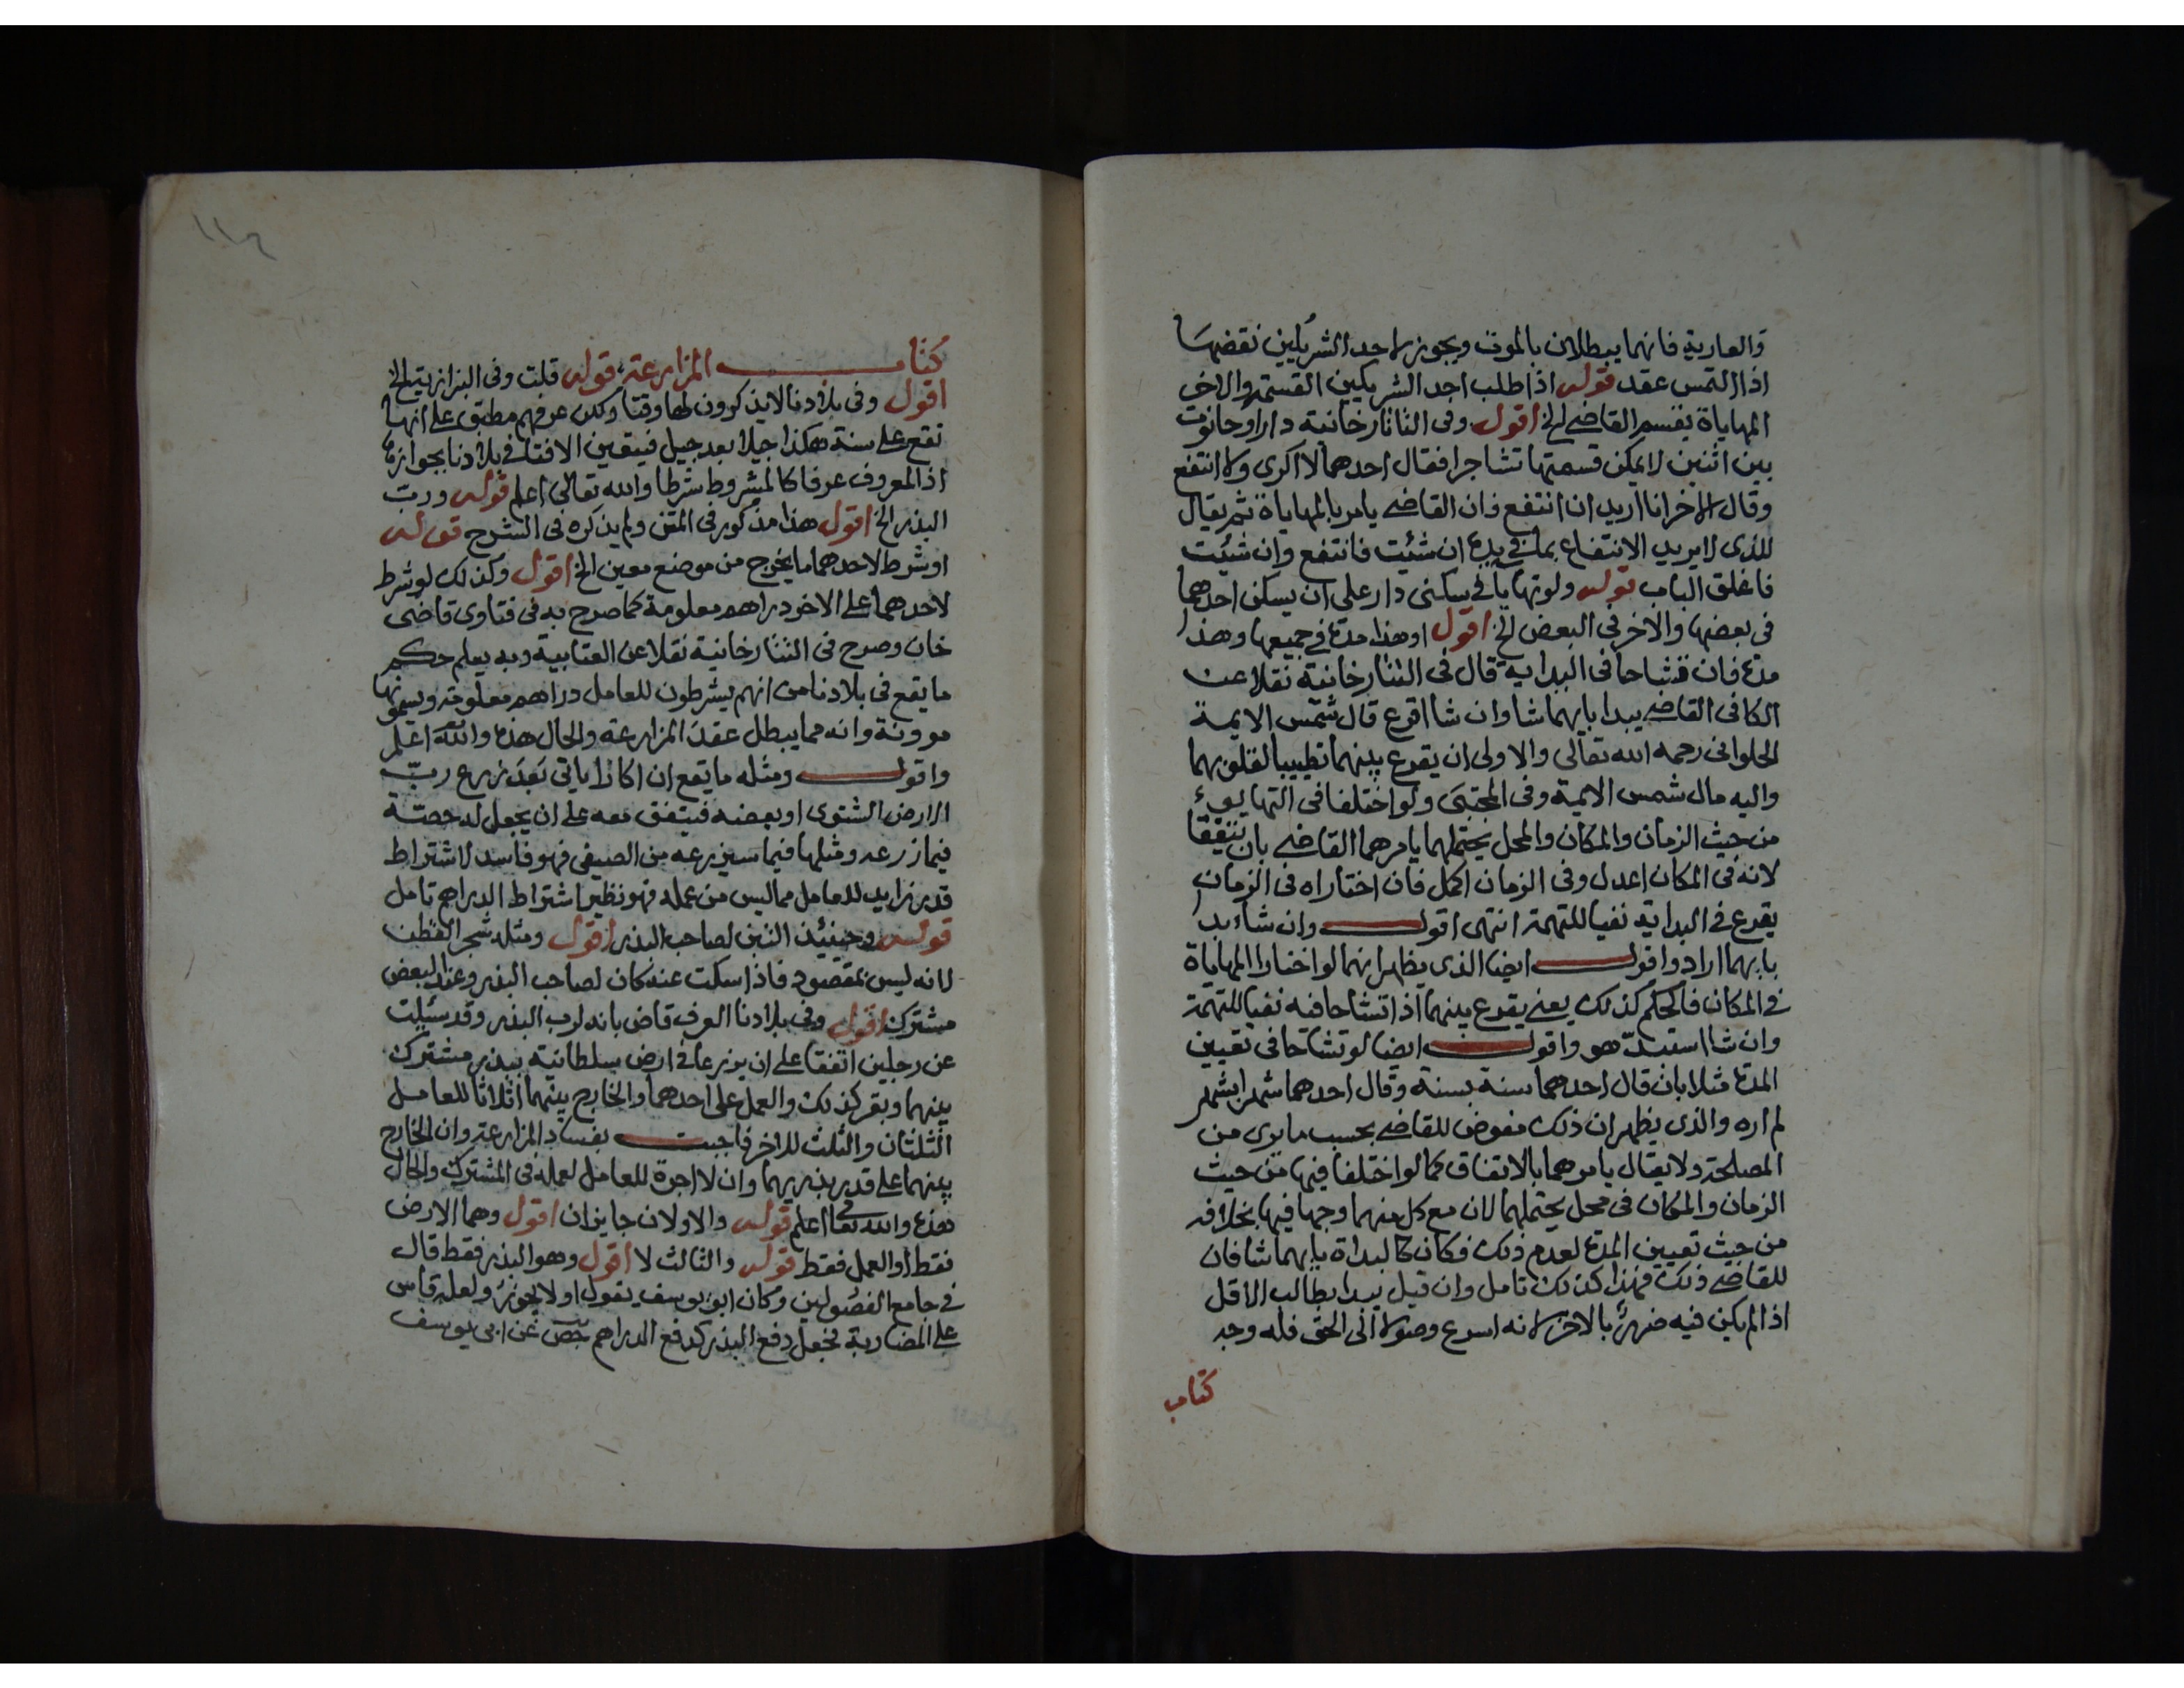 والعارية فانهما يبطلان بالموت ويجوز لاحد الشريكين نقضها
اذا التمس عقد قوله اذا طلب احد الشريكين القسمة والاخر
المهاياة يقسم القاضي الخ اقول وفى التاتارخانية دارا وحانوت
بين اثنين لا يمكن قسمتها تشاجرا فقال احدهما لا اكرى ولا انتفع
وقال الاخر انا اريد ان انتفع فان القاضي يامر بالمهاياة ثم يقال
للذى لا يريد الانتفاع بما في يده ان شئت فانتفع وان شئت
فاغلق الباب قوله ولو تهايأ في سكنى دار على ان يسكن احدهما
فى بعضها والاخر فى البعض الخ اقول او هذا مدة في جميعها وهذا
مدة فان تشاحا فى البداية قال فى التتارخانية نقلا عن
الكافى القاضي يبدا بايهما شا وان شا اقرع قال شمس الايمة
الحلوانى رحمه الله تعالى والاولى ان يقرع بينهما تطييبا لقلوبهما
واليه مال شمس الايمة وفى المجتبى ولو اختلفا فى التهايوء
من حيث الزمان والمكان والمحل يحتملهما يامرهما القاضي بان يتفقا
لانه فى المكان اعدل وفى الزمان اكمل فان اختاراه فى الزمان
يقرع في البداية نفيا للتهمة انتهى اقول وان شاء بد
بايهما اراد واقول ايضا الذى يظهر انهما لو اختارا المهاياة
في المكان فالحكم كذلك يعنى يقرع بينهما اذا تشاحا فيه نفيا للتهمة
وان شا استبدّ هو واقول ايضا لو تشاحا فى تعيين
المدة مثلا بان قال احدهما سنة بسنة وقال احدهما شهر بشهر
لم اره والذى يظهر ان ذلك مفوض للقاضي بحسب ما يرى من
المصلحة ولا يقال يامرهما بالاتفاق كما لو اختلفا فيها من حيث
الزمان والمكان فى محل يحتملهما لان مع كل منهما وجها فيها بخلافه
من حيث تعيين المدة لعدم ذلك فكان كالبداة بايهما شا فان
للقاضي ذلك فهذا كذلك تامل وان قيل يبدا بطالب الاقل
اذا لم يكن فيه ضررٌ بالاخر لانه اسرع وصولا الى الحق فله وجه
كتاب
١١٢
كتاب المزارعة قوله قلت وفى البزازية الخ
اقول وفى بلادنا لا يذكرون لها وقتا ولكن عرفهم مطبق على انها
تقع على سنة هكذا جيلا بعد جيل فيتعين الافتا في بلادنا بجوازها
اذ المعروف عرفا كالمشروط شرطا والله تعالى اعلم قوله ورب
البذر الخ اقول هذا مذكور فى المتن ولم يذكره فى الشرح قوله
او شرط لاحدهما ما يخرج من موضع معين الخ اقول وكذلك لو شرط
لاحدهما على الاخر دراهم معلومة كما صرح به فى فتاوى قاضى
خان وصرح فى التتارخانية نقلا عن العتابية وبه يعلم حكم
ما يقع فى بلادنا من انهم يشرطون للعامل دراهم معلومة ويسمونها
موونة وانه مما يبطل عقد المزارعة والحال هذه والله تعالى اعلم
واقول ومثله ما يقع ان اكارا ياتى بَعدَ زرع ربّ
الارض الشتوى او بعضه فيتفق معه على ان يجعل له حصّة
فيما زرعه ومثلها فيما سيزرعه من الصيفى فهو فاسد لاشتراط
قدر زايد للعامل مما ليس من عمله فهو نظير اشتراط الدراهم تامل
قوله وحينئذ التبن لصاحب البذر اقول ومثله شجر القطن
لانه ليس بمقصود فاذا سكت عنه كان لصاحب البذر وعند البعض
مشترك اقول وفى بلادنا العرف قاض بانه لرب البذر وقد سئلت
عن رجلين اتفقا على ان يزرعا في ارض سلطانية ببذر مشترك
بينهما وبقر كذلك والعمل على احدهما والخارج بينهما اثلاثا للعامل
الثلثان والثلث للاخر فاجبت بفساد المزارعة وان الخارج
بينهما على قدر بذريهما وان لا اجرة للعامل لعمله فى المشترك والحال
هذه والله تعالى اعلم قوله والاولان جايزان اقول وهما الارض
فقط او العمل فقط قوله والثالث لا اقول وهو البذر فقط قال
في جامع الفصولين وكان ابو يوسف يقول اولا يجوز ولعله قاس
على المضاربة فجعل دفع البذر كدفع الدراهم عن ابى يوسف